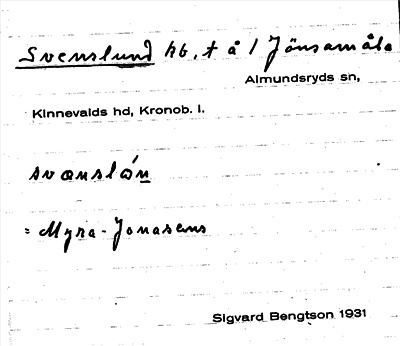 Svenslund hb, t å 1 Jönsamåla
Almundsryds sn,
Kinnevalds hd, Kronob. l.
svænslón
= Myra-Jonasens
Sigvard Bengtson 1931